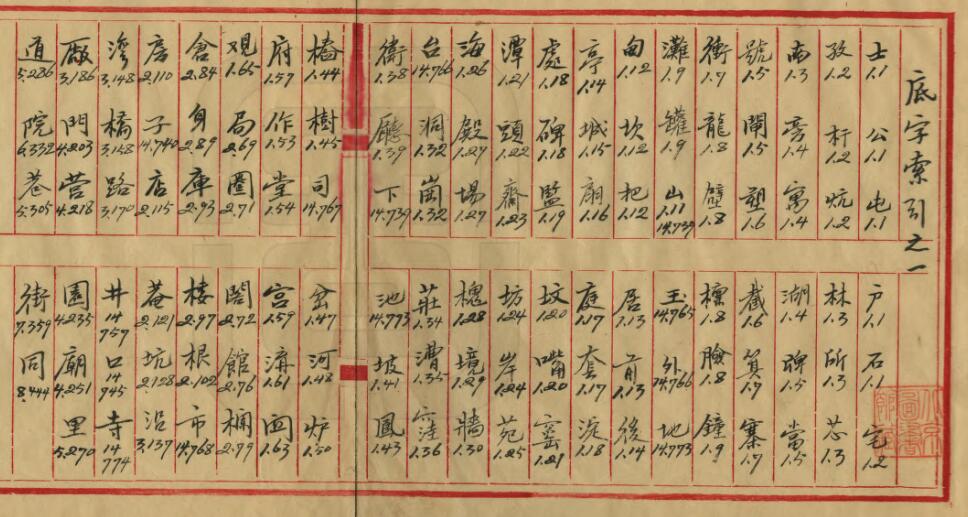 底字索引之一
士 1.1 公 1.1 屯 1.1 戶 1.1 石 1.1 宅 1.2
孜 1.2 杆 1.2 炕 1.2 林 1.3 所 1.3 芯 1.3
南 1.3 1.4 寓 1.4 湖 1.4 1.5 當 1.5
號 1.5 閘 1.5 塑 1.6 截 1.6 箕 1.7 寨 1.7
衝 1.7 龍 1.8 壁 1.8 標 1.8 臉 1.8 鐘 1.9
灘 1.9 罐 1.9 山 1.11 14.739 玉 14.765 外 14.766 地 14.773
甸 1.12 坎 1.12 把 1.12 居 1.13 前 1.13 後 1.14
亭 1.14 城 1.15 1.16 庭 1.17 套 1.17 淀 1.18
處 1.18 碑 1.18 監 1.19 坟 1.20 嘴 1.20 窑 1.21
潭 1.21 頭 1.22 齋 1.23 坊 1.24 岸 1.24 苑 1.25
海 1.26 殿 1.27 場 1.27 槐 1.28 境 1.29 牆 1.30
台 14.766 洞 1.32 崗 1.32 莊 1.34 漕 1.35 窪 1.36
衛 1.38 廳 1.39 下 14.739 池 14.773 坡 1.41 鳳 1.43
橋 1.44 樹 1.45 司 14.767 岔 1.47 河 1.48 炉 1.50
府 1.57 作 1.53 堂 1.54 宮 1.59 溝 1.61 1.63
观 1.65 局 2.69 圈 2.71 閣 2.72 館 2.76 欄 2.79
倉 2.84 身 2.89 庫 2.93 楼 2.97 根 2.102 市 14.768
房 2.110 子 14.740 店 2.115 菴 2.121 坑 2.128 沿 3.137
湾 3.148 橋 3.158 路 3.170 井 14 757 口 14 745 寺 14 774
廠 3.186 門 4.203 营 4.218 園 4.235 廟 4.251 里 5.270
道 5.286 院 6.332 巷 5.305 街 7.359 同 8.444